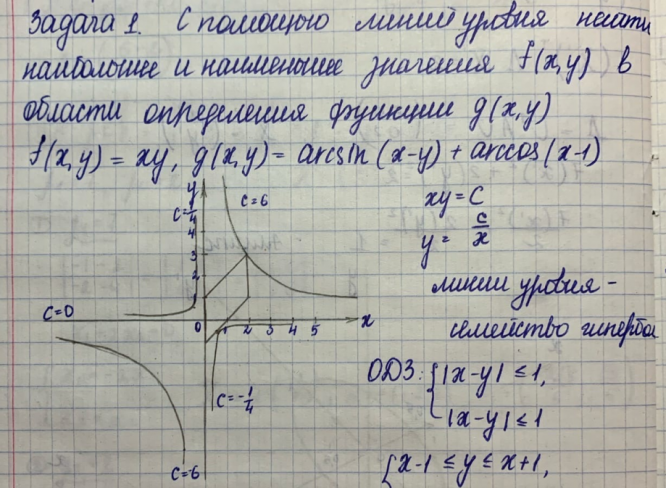 Задача 1. С помощью линий уровня найти
наибольшее и наименьшее значения f(x,y) в
области определения функции g(x,y)
f(x,y) = xy, g(x,y) = arcsin(x-y) + arccos(x-1)
y
C=-1/4
C=6
4
3
2
1
C=0
0
1 2 3 4 5
x
C=-1/4
C=6
xy = C
y = c/x
линии уровня -
семейство гипербол
ОДЗ: { |x-y| ≤ 1,
|x-y| ≤ 1
{ x-1 ≤ y ≤ x+1,